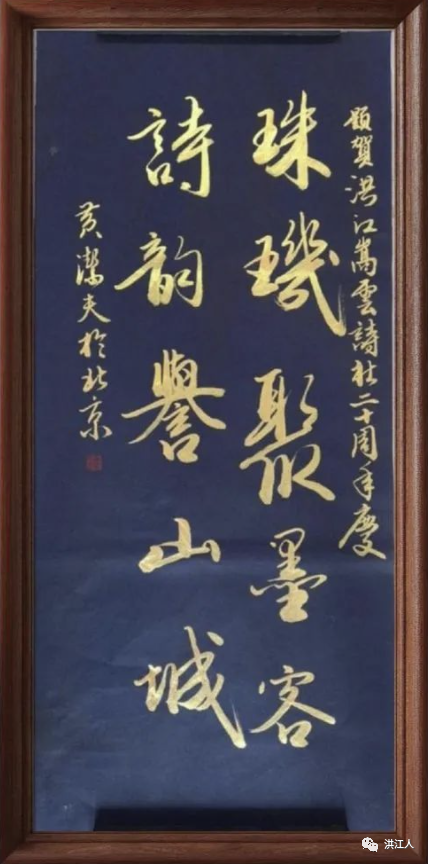 題賀洪江嵩雲詩社二十周年慶
珠璣聚墨客
詩韵譽山城
黄潔夫於北京
洪江人